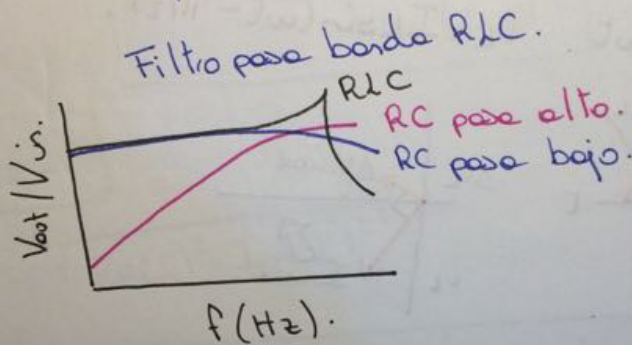 Filtro pasa banda RLC.
RLC
RC pasa alto.
RC pasa bajo.
Vout/Vin.
f(Hz).